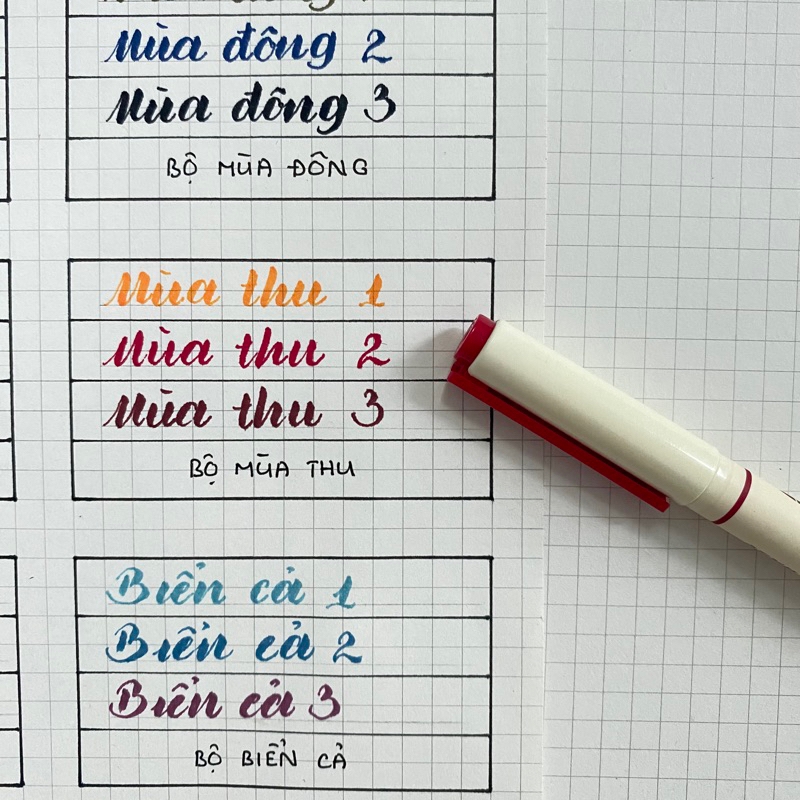 Mùa đông 2
Mùa đông 3
BỘ MÙA ĐÔNG
Mùa thu 1
Mùa thu 2
Mùa thu 3
BỘ MÙA THU
Biển cả 1
Biển cả 2
Biển cả 3
BỘ BIỂN CẢ